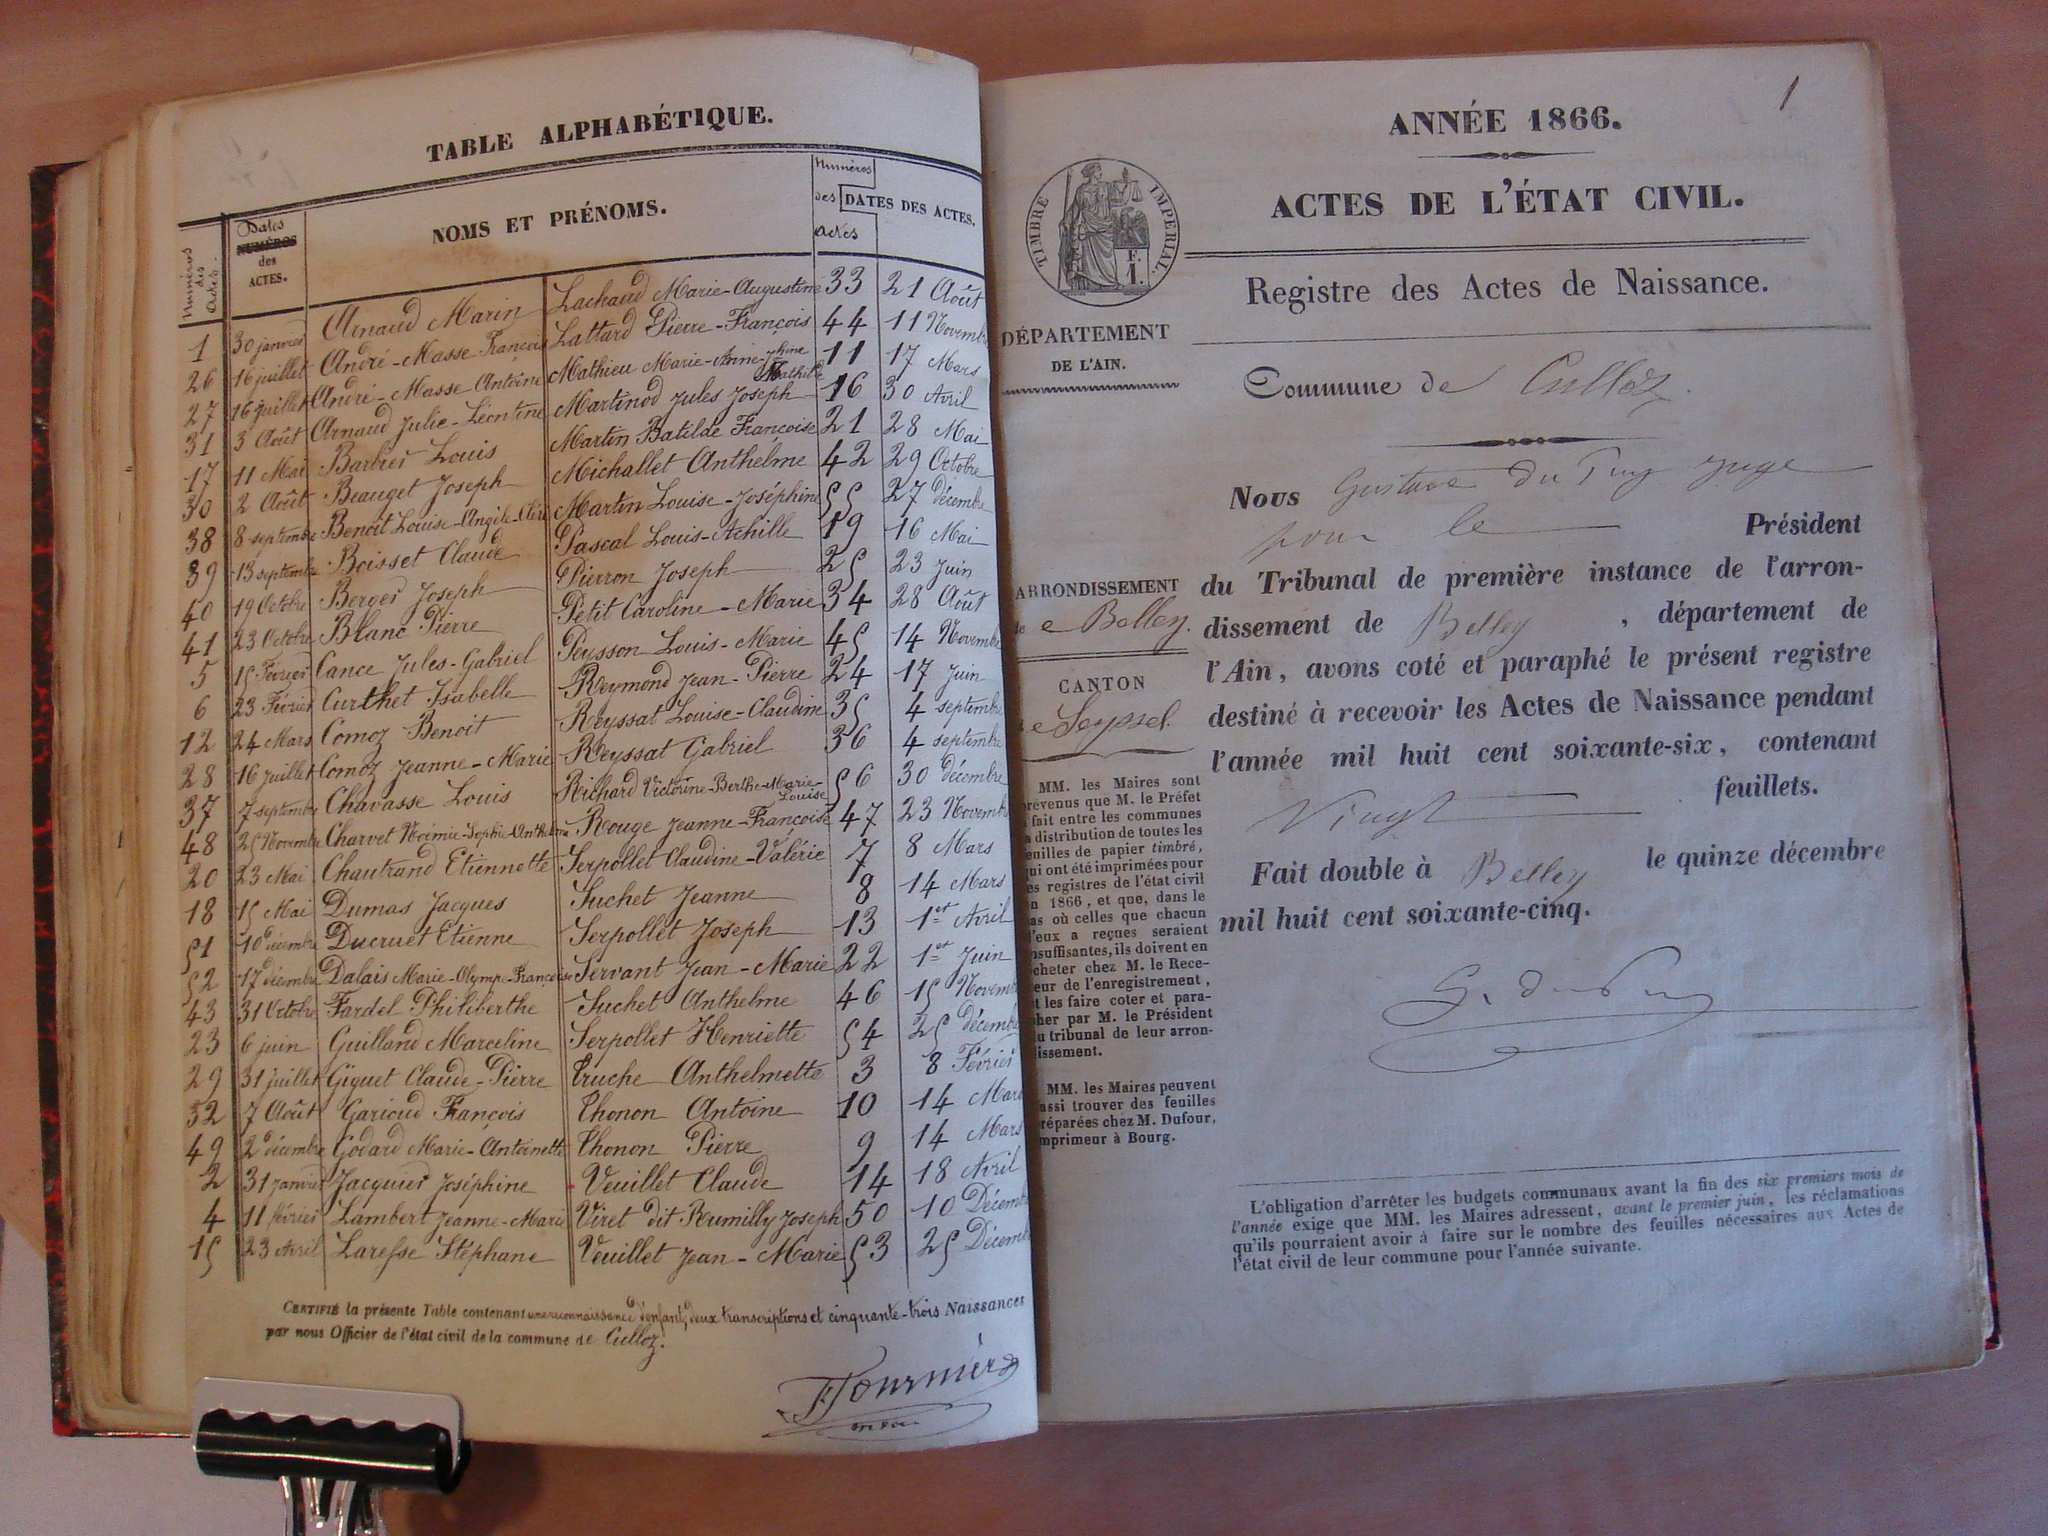 TABLE ALPHABÉTIQUE.
Numéros des Actes. Dates NUMÉROS des ACTES. NOMS ET PRÉNOMS. Numéros des Actes DATES DES ACTES.
1 30 janvier Arnaud Marin Lachaud Marie-Augustine 33 21 Août
26 16 juillet André-Masse François Lattard Pierre-François 44 11 Novembre
27 16 juillet André-Masse Antoine Mathieu Marie-Anne-Jhine Mathilde 11 17 Mars
31 3 Août Arnaud Julie-Léontine Martinod Jules Joseph 16 30 Avril
17 11 Mai Barbier Louis Martin Batilde Françoise 21 28 Mai
30 2 Août Beauget Joseph Michallet Anthelme 42 29 Octobre
38 8 septembre Benoit Louise-Angèle Martin Louise-Joséphine 55 27 décembre
39 13 septembre Boisset Claude Pascal Louis-Achille 19 16 Mai
40 19 Octobre Berger Joseph Pierron Joseph 25 23 Juin
41 23 Octobre Blanc Pierre Petit Caroline-Marie 34 28 Août
5 15 Février Cance Jules-Gabriel Peysson Louis-Marie 45 14 Novembre
6 23 Février Curthet Isabelle Reymond Jean-Pierre 24 17 Juin
12 24 Mars Comoz Benoit Reyssat Louise-Claudine 35 4 septembre
28 16 juillet Comoz Jeanne-Marie Reyssat Gabriel 36 4 septembre
37 7 septembre Chavasse Louis Richard Victorine-Berthe-Marie-Louise 56 30 décembre
48 25 Novembre Charvet Noémie-Sophie-Anthelme Rouge Jeanne-Françoise 47 23 Novembre
20 23 Mai Chautrand Etiennette Serpollet Claudine-Valérie 7 8 Mars
18 15 Mai Dumas Jacques Suchet Jeanne 8 14 Mars
51 10 décembre Ducruet Etienne Serpollet Joseph 13 1er Avril
52 17 décembre Dalais Marie-Olympe-Françoise Servant Jean-Marie 22 1er Juin
43 31 Octobre Fardel Philiberthe Suchet Anthelme 46 15 Novembre
23 6 juin Guilland Marceline Serpollet Henriette 54 25 décembre
29 31 juillet Giguet Claude-Pierre Truche Anthelmette 3 8 Février
32 7 Août Garioud François Thonon Antoine 10 14 Mars
49 2 décembre Godard Marie-Antoinette Thonon Pierre 9 14 Mars
2 31 janvier Jacquier Joséphine Veuillet Claude 14 18 Avril
4 11 février Lambert Jeanne-Marie Viret dit Rumilly Joseph 50 10 Décembre
15 23 Avril Laresse Stéphane Veuillet Jean-Marie 53 25 Décembre
CERTIFIÉ la présente Table contenant une reconnaissance d'enfant, deux transcriptions et cinquante-trois Naissances
par nous Officier de l'état civil de la commune de Culloz.
Fournier
1
ANNÉE 1866.
ACTES DE L'ÉTAT CIVIL.
TIMBRE IMPERIAL.
F. 1.
Registre des Actes de Naissance.
DÉPARTEMENT
DE L'AIN.
Commune de Culloz.
ARRONDISSEMENT
de Belley.
CANTON
de Seyssel.
MM. les Maires sont
prévenus que M. le Préfet
a fait entre les communes
la distribution de toutes les
feuilles de papier timbré,
qui ont été imprimées pour
les registres de l'état civil
en 1866, et que, dans le
cas où celles que chacun
d'eux a reçues seraient
insuffisantes, ils doivent en
acheter chez M. le Rece-
veur de l'enregistrement,
et les faire coter et para-
pher par M. le Président
du tribunal de leur arron-
dissement.
MM. les Maires peuvent
aussi trouver des feuilles
préparées chez M. Dufour,
imprimeur à Bourg.
Nous Gustave du Puy Juge
pour le Président
du Tribunal de première instance de l'arron-
dissement de Belley, département de
l'Ain, avons coté et paraphé le présent registre
destiné à recevoir les Actes de Naissance pendant
l'année mil huit cent soixante-six, contenant
Vingt feuillets.
Fait double à Belley le quinze décembre
mil huit cent soixante-cinq.
G. du Puy
L'obligation d'arrêter les budgets communaux avant la fin des six premiers mois de
l'année exige que MM. les Maires adressent, avant le premier juin, les réclamations
qu'ils pourraient avoir à faire sur le nombre des feuilles nécessaires aux Actes de
l'état civil de leur commune pour l'année suivante.